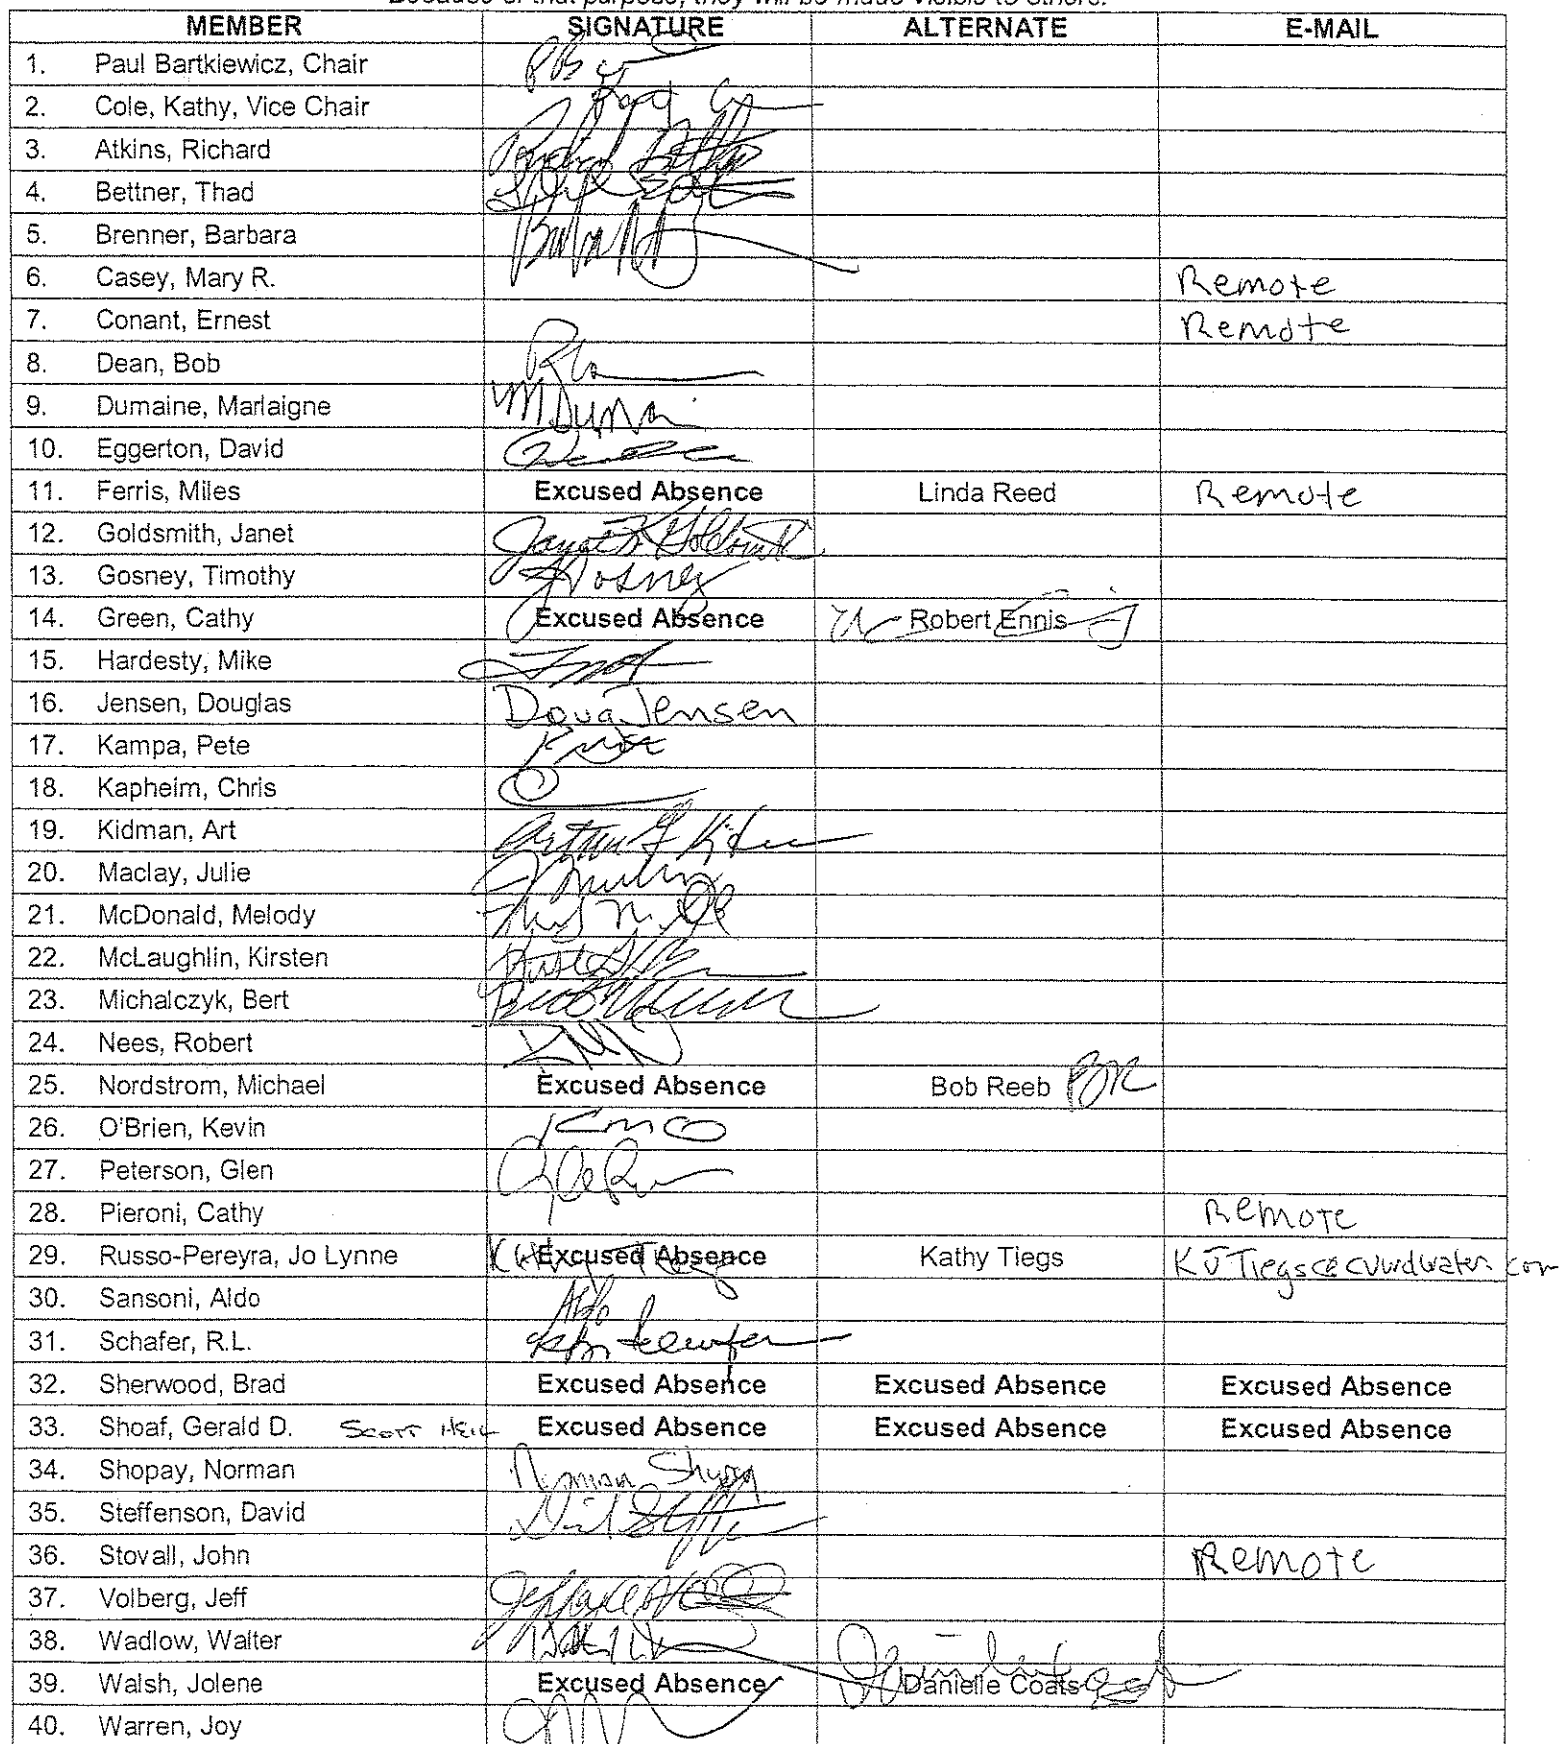 Because of that purpose, they will be made visible to others.
MEMBER SIGNATURE ALTERNATE E-MAIL
1. Paul Bartkiewicz, Chair
2. Cole, Kathy, Vice Chair
3. Atkins, Richard
4. Bettner, Thad
5. Brenner, Barbara
6. Casey, Mary R. Remote
7. Conant, Ernest Remote
8. Dean, Bob
9. Dumaine, Marlaigne
10. Eggerton, David
11. Ferris, Miles Excused Absence Linda Reed Remote
12. Goldsmith, Janet Janet K Goldsmith
13. Gosney, Timothy JGosney
14. Green, Cathy Excused Absence Robert Ennis
15. Hardesty, Mike
16. Jensen, Douglas Doug Jensen
17. Kampa, Pete
18. Kapheim, Chris
19. Kidman, Art
20. Maclay, Julie
21. McDonald, Melody
22. McLaughlin, Kirsten
23. Michalczyk, Bert
24. Nees, Robert
25. Nordstrom, Michael Excused Absence Bob Reeb
26. O'Brien, Kevin
27. Peterson, Glen
28. Pieroni, Cathy Remote
29. Russo-Pereyra, Jo Lynne Excused Absence Kathy Tiegs
30. Sansoni, Aldo Aldo
31. Schafer, R.L.
32. Sherwood, Brad Excused Absence Excused Absence Excused Absence
33. Shoaf, Gerald D. Scott Excused Absence Excused Absence Excused Absence
34. Shopay, Norman Norman Shopay
35. Steffenson, David
36. Stovall, John Remote
37. Volberg, Jeff
38. Wadlow, Walter
39. Walsh, Jolene Excused Absence Danielle Coats
40. Warren, Joy